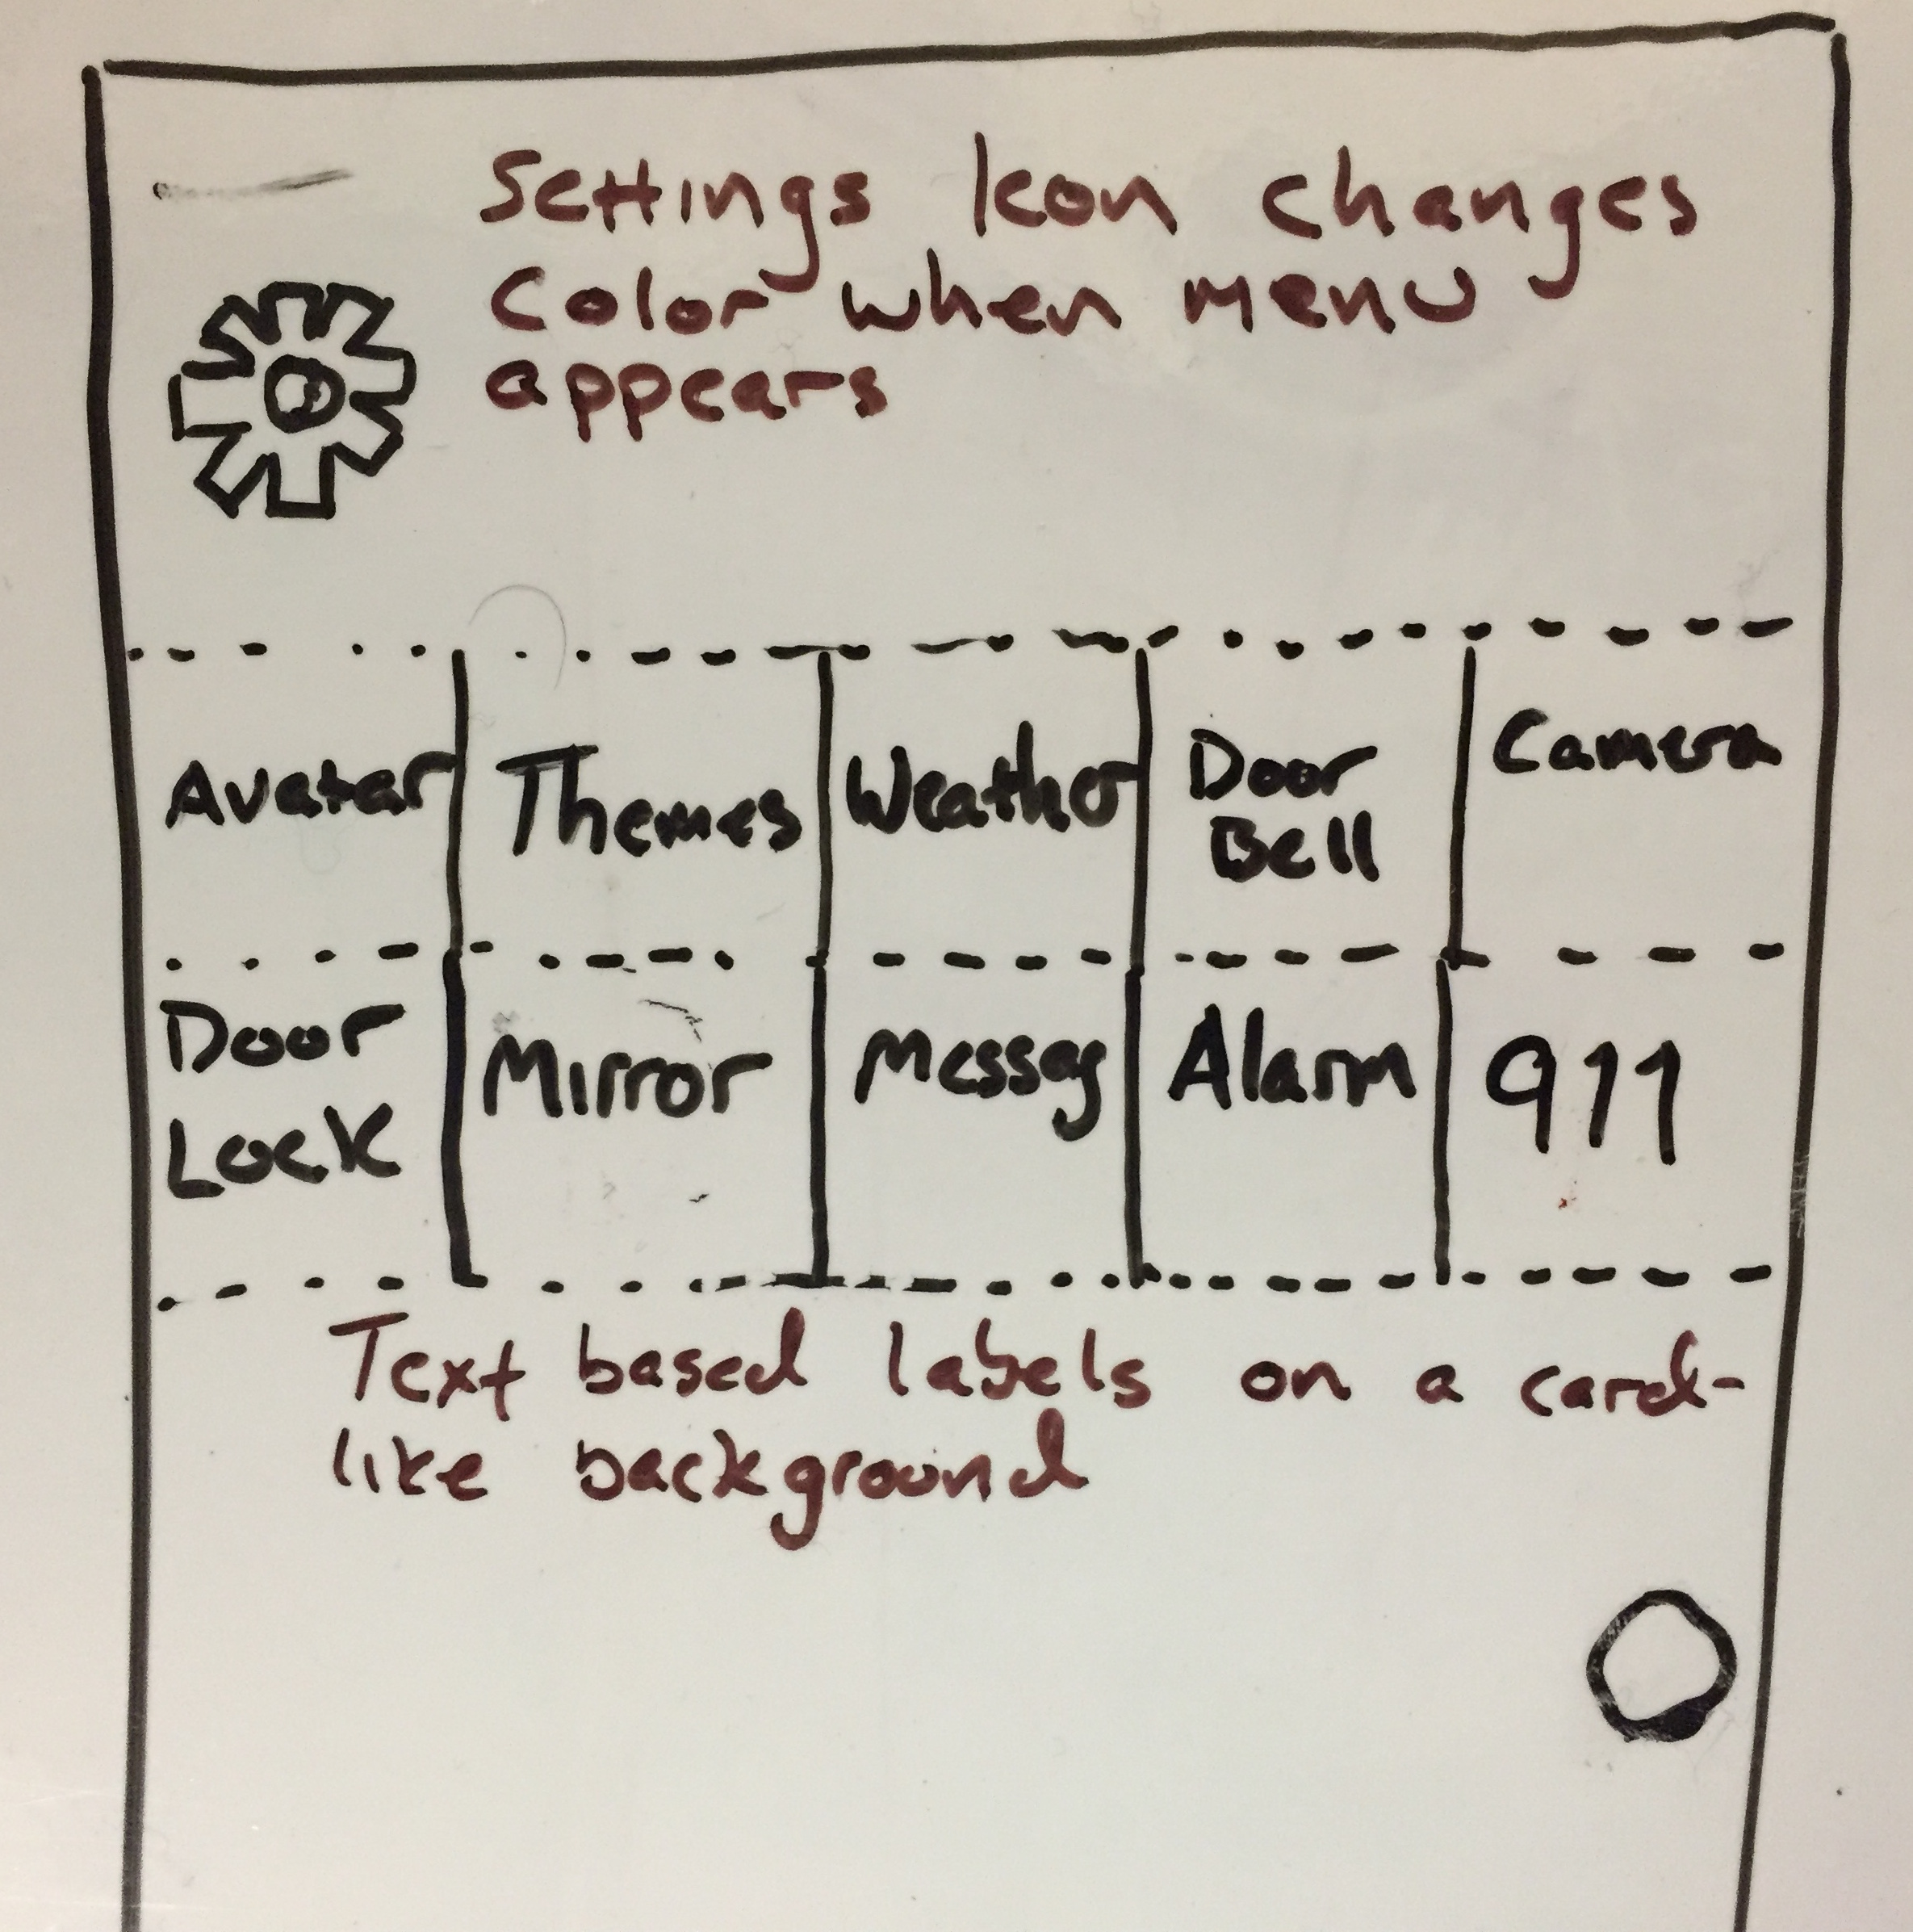 Settings Icon changes
Color when menu
appears
Avatar Themes Weather Door Bell Camera
Door Lock Mirror Messag Alarm 911
Text based labels on a card-
like background